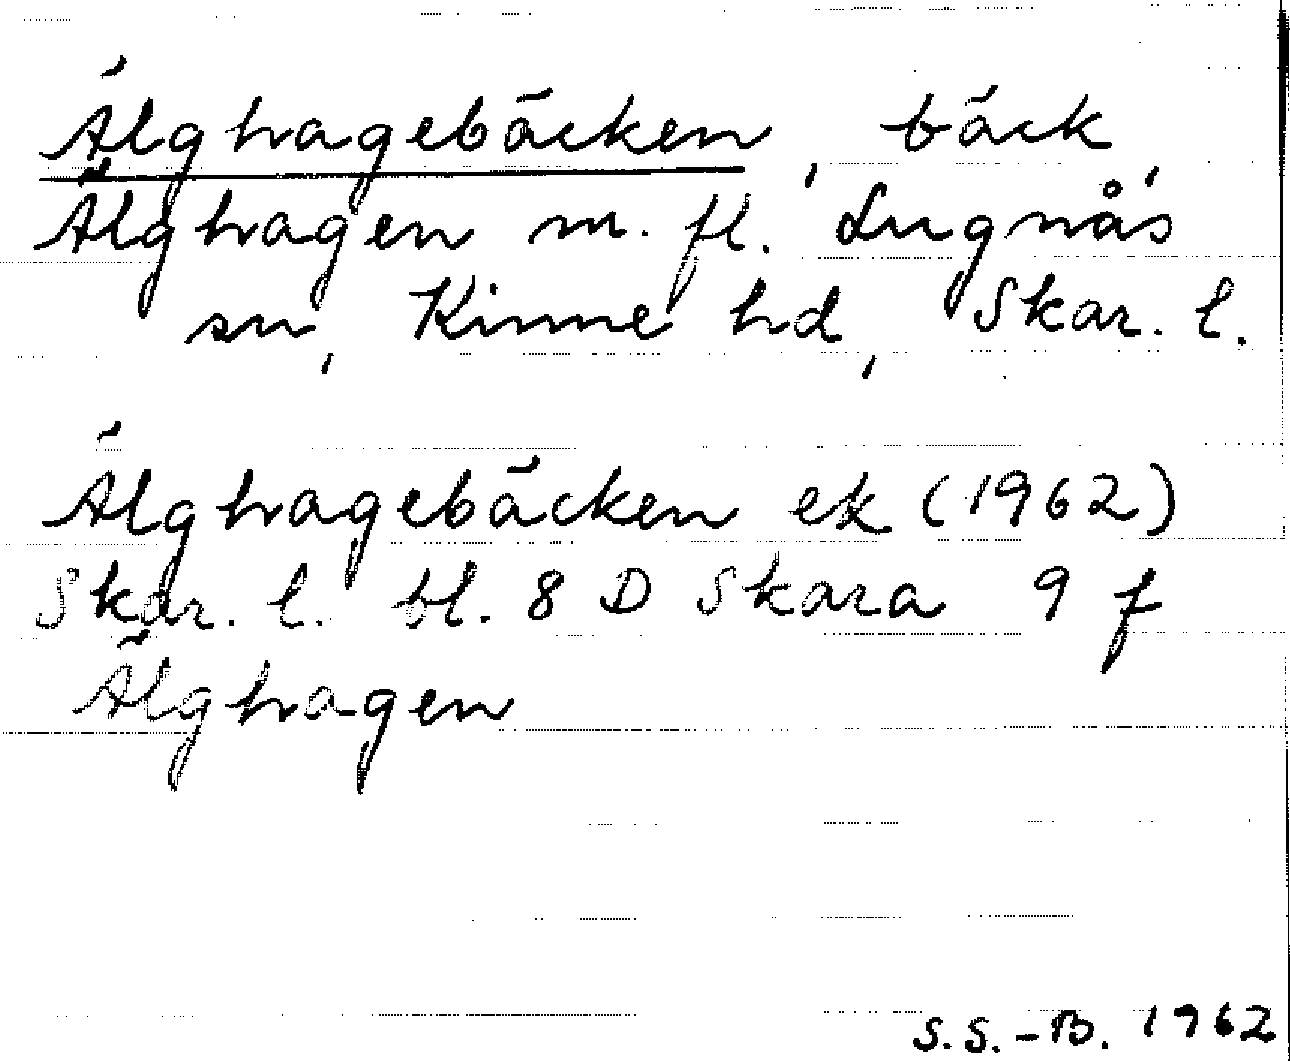 Älghagebäcken, bäck,
Älghagen m. fl. Lugnås
sn, Kinne hd, Skar. l.
Älghagebäcken ek (1962)
Skar. l. bl. 8 D Skara 9 f
Älghagen
S.S.-B. 1962